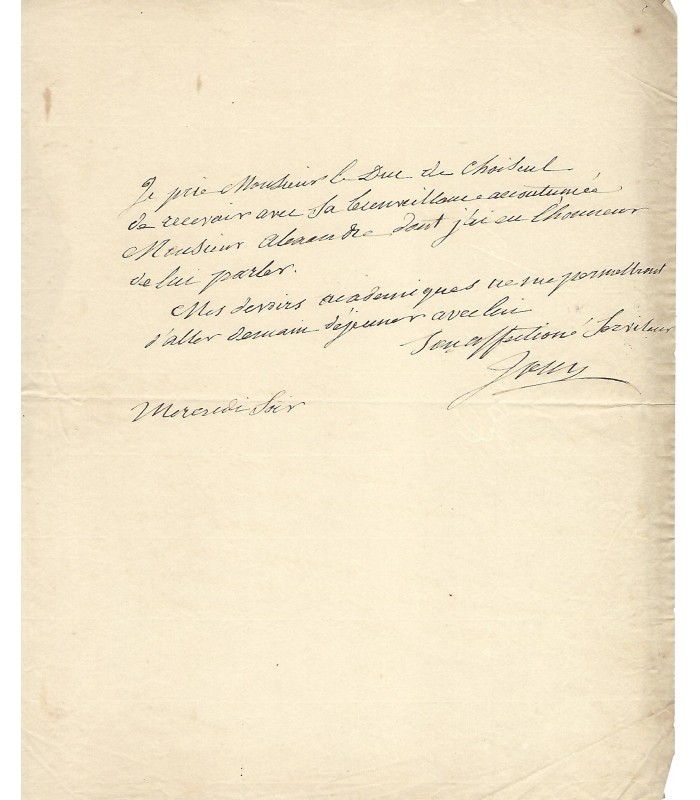 Je prie Monsieur le Duc de Choiseul
de recevoir avec sa bienveillance accoutumée
Monsieur Alexandre dont j'ai eu l'honneur
de lui parler.
Mes devoirs academiques ne me permettront
d'aller demain déjeuner avec lui
Son affectioné Serviteur
Jouy
Mercredi Soir